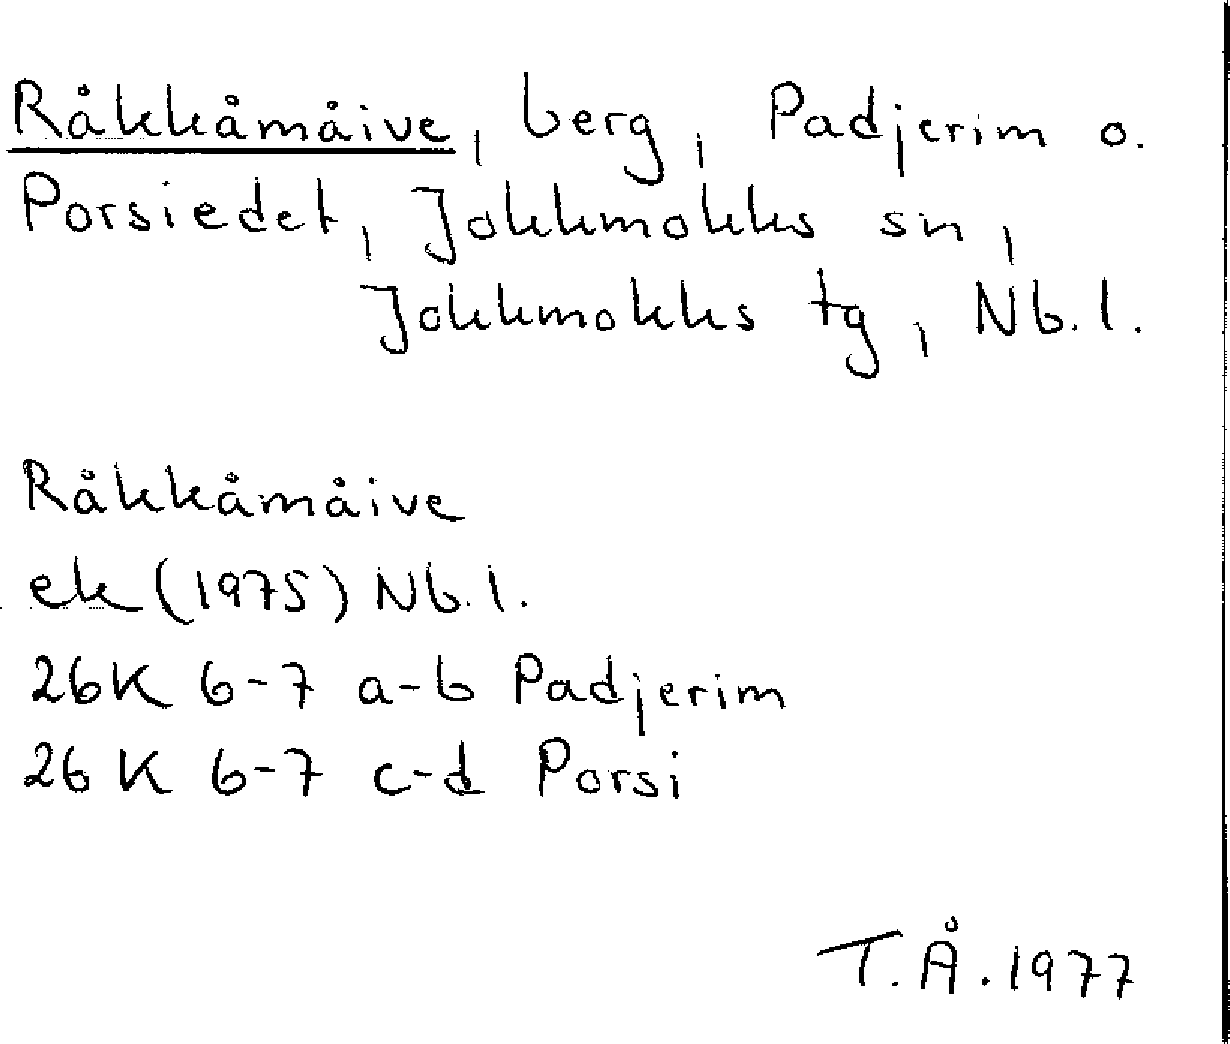 Råkkåmåive, berg, Padjerim o.
Porsiedet, Jokkmokks sn,
Jokkmokks tg, Nb.l.
Råkkåmåive
ek (1975) Nb.l.
26K 6-7 a-b Padjerim
26K 6-7 c-d Porsi
T.Å. 1977